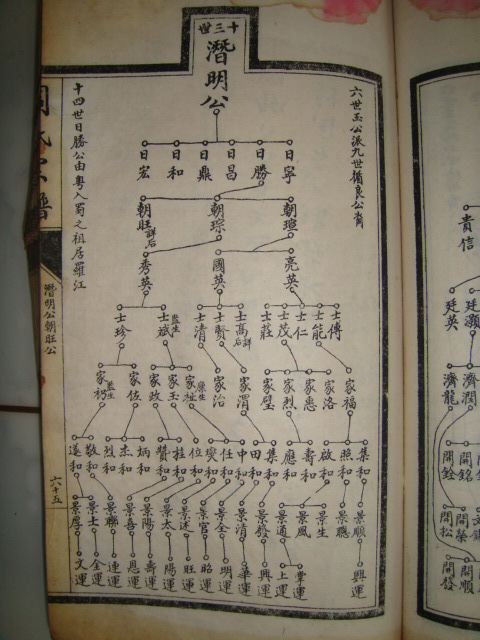 十三世
潛明公
六世玉公派九世循良公裔
日寧
日勝
日昌
日鼎
日和
日宏
十四世日勝公由粵入蜀之祖居羅江
朝瑄
朝琮
朝旺
詳后
亮英
國英
秀英
士傳
士能
士仁
士茂
士莊
士高
詳后
士賢
士清
士斌
監生
士珍
家福
家洛
家惠
家烈
家璧
家渭
家治
家玉
家政
家佐
集和
照和
啟和
壽和
應和
集和
田和
中和
任和
燮和
位和
桂和
贊和
炳和
杰和
烈和
敬和
遂和
景順
景聰
景生
景風
景通
景發
景清
景全
景官
景述
景太
景陽
景喜
景聯
景士
景厚
興運
掌運
上運
興運
華運
明運
昭運
旺運
陽運
壽運
恩運
連運
金運
文運
潛明公朝旺公
六十五
貴信
廷灝
廷英
濟潤
濟龍
開銘
開銓
開榮
開松
開順
開發